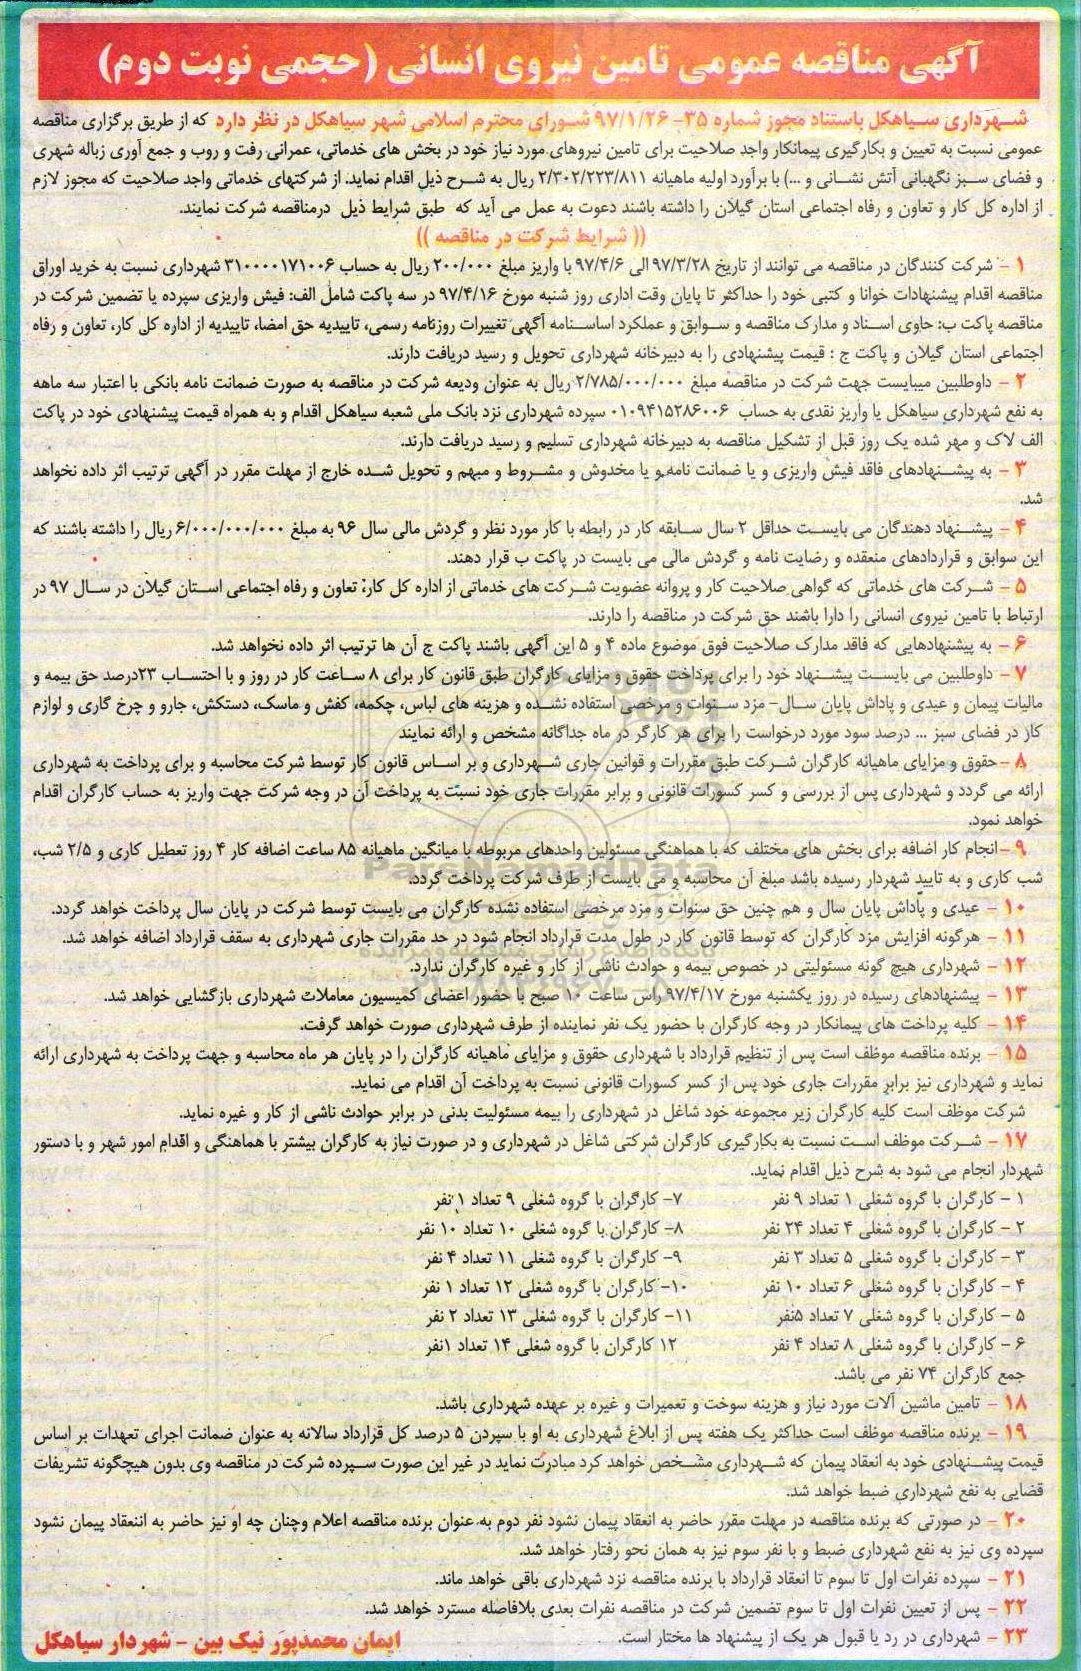 آگهی مناقصه عمومی تامین نیروی انسانی (حجمی نوبت دوم)
شهرداری سیاهکل باستناد مجوز شماره ۳۵- ۹۷/۱/۲۶ شورای محترم اسلامی شهر سیاهکل در نظر دارد که از طریق برگزاری مناقصه
عمومی نسبت به تعیین و بکارگیری پیمانکار واجد صلاحیت برای تامین نیروهای مورد نیاز خود در بخش های خدماتی، عمرانی رفت و روب و جمع آوری زباله شهری
و فضای سبز نگهبانی آتش نشانی و ...) با برآورد اولیه ماهیانه ۲/۳۰۲/۲۲۳/۸۱۱ ریال به شرح ذیل اقدام نماید. از شرکتهای خدماتی واجد صلاحیت که مجوز لازم
از اداره کل کار و تعاون و رفاه اجتماعی استان گیلان را داشته باشند دعوت به عمل می آید که طبق شرایط ذیل درمناقصه شرکت نمایند.
(( شرایط شرکت در مناقصه ))
۱ - شرکت کنندگان در مناقصه می توانند از تاریخ ۹۷/۳/۲۸ الی ۹۷/۴/۶ با واریز مبلغ ۲۰۰/۰۰۰ ریال به حساب ۳۱۰۰۰۰۱۷۱۰۰۶ شهرداری نسبت به خرید اوراق
مناقصه اقدام پیشنهادات خوانا و کتبی خود را حداکثر تا پایان وقت اداری روز شنبه مورخ ۹۷/۴/۱۶ در سه پاکت شامل الف: فیش واریزی سپرده یا تضمین شرکت در
مناقصه پاکت ب: حاوی اسناد و مدارک مناقصه و سوابق و عملکرد اساسنامه آگهی تغییرات روزنامه رسمی، تاییدیه حق امضا، تاییدیه از اداره کل کار، تعاون و رفاه
اجتماعی استان گیلان و پاکت ج : قیمت پیشنهادی را به دبیرخانه شهرداری تحویل و رسید دریافت دارند.
۲ - داوطلبین میبایست جهت شرکت در مناقصه مبلغ ۲/۷۸۵/۰۰۰/۰۰۰ ریال به عنوان ودیعه شرکت در مناقصه به صورت ضمانت نامه بانکی با اعتبار سه ماهه
به نفع شهرداری سیاهکل یا واریز نقدی به حساب ۰۱۰۹۴۱۵۲۸۶۰۰۶ سپرده شهرداری نزد بانک ملی شعبه سیاهکل اقدام و به همراه قیمت پیشنهادی خود در پاکت
الف لاک و مهر شده یک روز قبل از تشکیل مناقصه به دبیرخانه شهرداری تسلیم و رسید دریافت دارند.
۳ - به پیشنهادهای فاقد فیش واریزی و یا ضمانت نامه و یا مخدوش و مشروط و مبهم و تحویل شده خارج از مهلت مقرر در آگهی ترتیب اثر داده نخواهد
شد.
۴ - پیشنهاد دهندگان می بایست حداقل ۲ سال سابقه کار در رابطه با کار مورد نظر و گردش مالی سال ۹۶ به مبلغ ۶/۰۰۰/۰۰۰/۰۰۰ ریال را داشته باشند که
این سوابق و قراردادهای منعقده و رضایت نامه و گردش مالی می بایست در پاکت ب قرار دهند.
۵ - شرکت های خدماتی که گواهی صلاحیت کار و پروانه عضویت شرکت های خدماتی از اداره کل کار، تعاون و رفاه اجتماعی استان گیلان در سال ۹۷ در
ارتباط با تامین نیروی انسانی را دارا باشند حق شرکت در مناقصه را دارند.
۶ - به پیشنهادهایی که فاقد مدارک صلاحیت فوق موضوع ماده ۴ و ۵ این آگهی باشند پاکت ج آن ها ترتیب اثر داده نخواهد شد.
۷ - داوطلبین می بایست پیشنهاد خود را برای پرداخت حقوق و مزایای کارگران طبق قانون کار برای ۸ ساعت کار در روز و با احتساب ۲۳درصد حق بیمه و
مالیات پیمان و عیدی و پاداش پایان سال- مزد سنوات و مرخصی استفاده نشده و هزینه های لباس، چکمه، کفش و ماسک، دستکش، جارو و چرخ گاری و لوازم
کار در فضای سبز ... درصد سود مورد درخواست را برای هر کارگر در ماه جداگانه مشخص و ارائه نمایند
۸ -حقوق و مزایای ماهیانه کارگران شرکت طبق مقررات و قوانین جاری شهرداری و بر اساس قانون کار توسط شرکت محاسبه و برای پرداخت به شهرداری
ارائه می گردد و شهرداری پس از بررسی و کسر کسورات قانونی و برابر مقررات جاری خود نسبت به پرداخت آن در وجه شرکت جهت واریز به حساب کارگران اقدام
خواهد نمود.
۹ -انجام کار اضافه برای بخش های مختلف که با هماهنگی مسئولین واحدهای مربوطه با میانگین ماهیانه ۸۵ ساعت اضافه کار ۴ روز تعطیل کاری و ۲/۵ شب،
شب کاری و به تایید شهردار رسیده باشد مبلغ آن محاسبه و می بایست از طرف شرکت پرداخت گردد.
۱۰ - عیدی و پاداش پایان سال و هم چنین حق سنوات و مزد مرخصی استفاده نشده کارگران می بایست توسط شرکت در پایان سال پرداخت خواهد گردد.
۱۱ - هرگونه افزایش مزد کارگران که توسط قانون کار در طول مدت قرارداد انجام شود در حد مقررات جاری شهرداری به سقف قرارداد اضافه خواهد شد.
۱۲ - شهرداری هیچ گونه مسئولیتی در خصوص بیمه و حوادث ناشی از کار و غیره کارگران ندارد.
۱۳ - پیشنهادهای رسیده در روز یکشنبه مورخ ۹۷/۴/۱۷ راس ساعت ۱۰ صبح با حضور اعضای کمیسیون معاملات شهرداری بازگشایی خواهد شد.
۱۴ - کلیه پرداخت های پیمانکار در وجه کارگران با حضور یک نفر نماینده از طرف شهرداری صورت خواهد گرفت.
۱۵ - برنده مناقصه موظف است پس از تنظیم قرارداد با شهرداری حقوق و مزایای ماهیانه کارگران را در پایان هر ماه محاسبه و جهت پرداخت به شهرداری ارائه
نماید و شهرداری نیز برابر مقررات جاری خود پس از کسر کسورات قانونی نسبت به پرداخت آن اقدام می نماید.
شرکت موظف است کلیه کارگران زیر مجموعه خود شاغل در شهرداری را بیمه مسئولیت بدنی در برابر حوادث ناشی از کار و غیره نماید.
۱۷ - شرکت موظف است نسبت به بکارگیری کارگران شرکتی شاغل در شهرداری و در صورت نیاز به کارگران بیشتر با هماهنگی و اقدام امور شهر و با دستور
شهردار انجام می شود به شرح ذیل اقدام نماید.
۱ - کارگران با گروه شغلی ۱ تعداد ۹ نفر
۲ - کارگران با گروه شغلی ۴ تعداد ۲۴ نفر
۳ - کارگران با گروه شغلی ۵ تعداد ۳ نفر
۴ - کارگران با گروه شغلی ۶ تعداد ۱۰ نفر
۵ - کارگران با گروه شغلی ۷ تعداد ۵نفر
۶ - کارگران با گروه شغلی ۸ تعداد ۴ نفر
۷- کارگران با گروه شغلی ۹ تعداد ۱ نفر
۸- کارگران با گروه شغلی ۱۰ تعداد ۱۰ نفر
۹- کارگران با گروه شغلی ۱۱ تعداد ۴ نفر
۱۰- کارگران با گروه شغلی ۱۲ تعداد ۱ نفر
۱۱- کارگران با گروه شغلی ۱۳ تعداد ۲ نفر
۱۲ کارگران با گروه شغلی ۱۴ تعداد ۱نفر
جمع کارگران ۷۴ نفر می باشد.
۱۸ - تامین ماشین آلات مورد نیاز و هزینه سوخت و تعمیرات و غیره بر عهده شهرداری باشد.
۱۹ - برنده مناقصه موظف است حداکثر یک هفته پس از ابلاغ شهرداری به او با سپردن ۵ درصد کل قرارداد سالانه به عنوان ضمانت اجرای تعهدات بر اساس
قیمت پیشنهادی خود به انعقاد پیمان که شهرداری مشخص خواهد کرد مبادرت نماید در غیر این صورت سپرده شرکت در مناقصه وی بدون هیچگونه تشریفات
قضایی به نفع شهرداری ضبط خواهد شد.
۲۰ - در صورتی که برنده مناقصه در مهلت مقرر حاضر به انعقاد پیمان نشود نفر دوم به عنوان برنده مناقصه اعلام وچنان چه او نیز حاضر به اننعقاد پیمان نشود
سپرده وی نیز به نفع شهرداری ضبط و با نفر سوم نیز به همان نحو رفتار خواهد شد.
۲۱ - سپرده نفرات اول تا سوم تا انعقاد قرارداد با برنده مناقصه نزد شهرداری باقی خواهد ماند.
۲۲ - پس از تعیین نفرات اول تا سوم تضمین شرکت در مناقصه نفرات بعدی بلافاصله مسترد خواهد شد.
۲۳ - شهرداری در رد یا قبول هر یک از پیشنهاد ها مختار است.
ایمان محمدپور نیک بین - شهردار سیاهکل